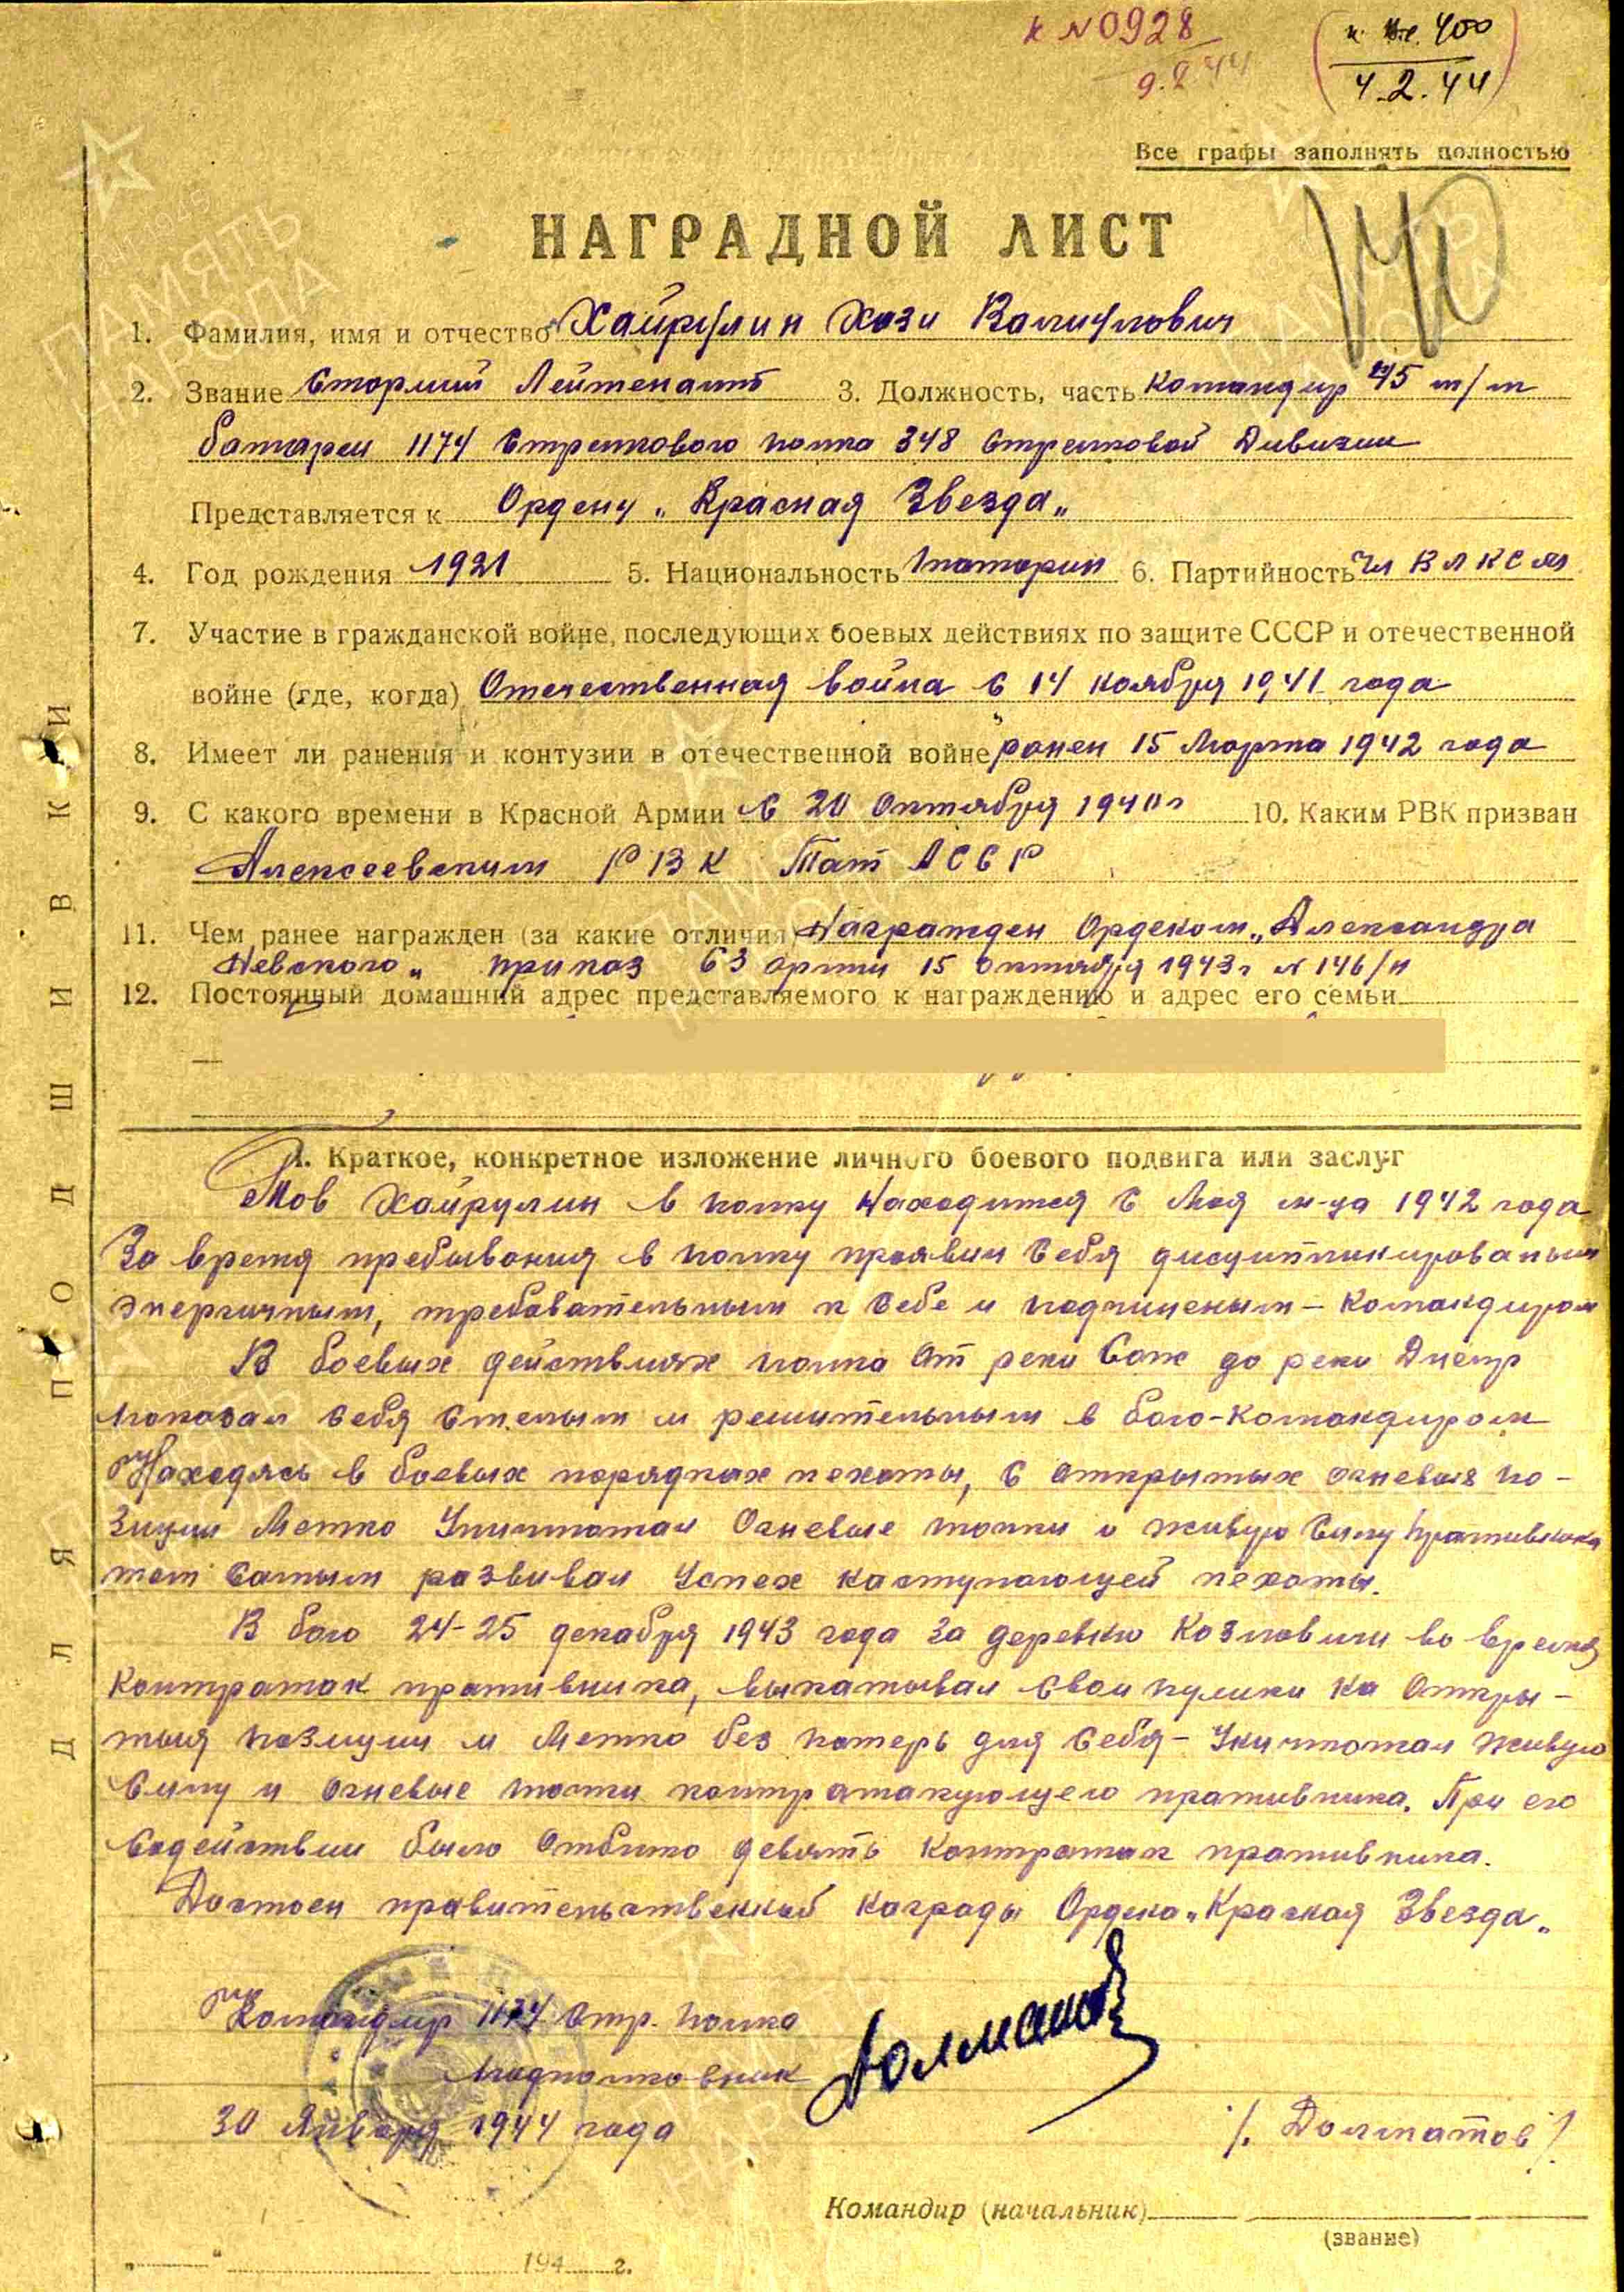 к №0928
9.2.44
к вх. 400
4.2.44
Все графы заполнять полностью
НАГРАДНОЙ ЛИСТ
1. Фамилия, имя и отчество Хайрулин Хази Валиулович
2. Звание Старший Лейтенант 3. Должность, часть Командир 45 м/м
батареи 1174 Стрелкового полка 348 Стрелковой Дивизии
Представляется к Ордену „Красная Звезда„
4. Год рождения 1921 5. Национальность татарин 6. Партийность Чл ВЛКСМ
7. Участие в гражданской войне, последующих боевых действиях по защите СССР и отечественной
войне (где, когда) Отечественная война с 14 ноября 1941 года
8. Имеет ли ранения и контузии в отечественной войне ранен 15 Марта 1942 года
9. С какого времени в Красной Армии с 20 Октября 1940 г 10. Каким РВК призван
Алексеевским РВК Тат АССР
11. Чем ранее награжден (за какие отличия) Награжден Орденом „Александра
Невского„ приказ 63 армии 15 октября 1943 г № 146/н
12. Постоянный домашний адрес представляемого к награждению и адрес его семьи
1. Краткое, конкретное изложение личного боевого подвига или заслуг
Тов Хайрулин в полку Находится с Мая м-ца 1942 года
За время пребывания в полку проявил себя дисциплинированым
энергичным, требовательным к себе и подчиненым – командиром
В боевых действиях полка От реки Сож до реки Днепр
показал себя смелым и решительным в бою – командиром
Находясь в боевых порядках пехоты, с открытых огневых по-
зиций Метко Уничтожал Огневые точки и живую силу противника
тем самым развивал Успех наступающей пехоты.
В бою 24-25 декабря 1943 года за деревню Козловичи во время
контратак противника, выкатывал свои пушки на Откры-
тыя позиции и Метко без потерь для себя – Уничтожал живую
силу и огневые точки контратакующего противника. При его
содействии было Отбито девять контратак противника.
Достоен правительственной награды Ордена „Красная Звезда„
Командир 1174 Стр. полка
Подполковник
Долматов
30 Января 1944 года
/. Долматов /
Командир (начальник)
(звание)
„ “ 194 г.
ДЛЯ ПОДШИВКИ
ПАМЯТЬ НАРОДА